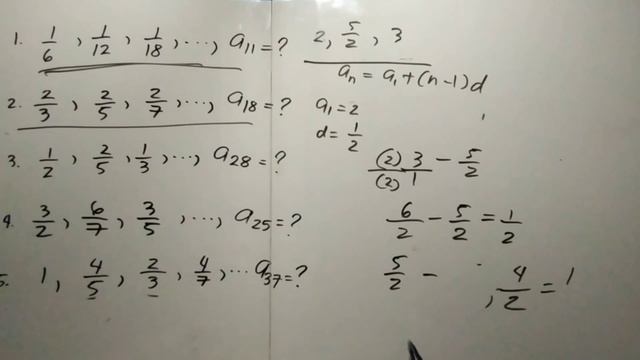 1. 1/6 , 1/12 , 1/18 , ..., a₁₁ = ?
2. 2/3 , 2/5 , 2/7 , ..., a₁₈ = ?
3. 1/2 , 2/5 , 1/3 , ..., a₂₈ = ?
4. 3/2 , 6/7 , 3/5 , ..., a₂₅ = ?
5. 1 , 4/5 , 2/3 , 4/7 , ... a₃₇ = ?
2, 5/2 , 3
aₙ = a₁ + (n-1)d
a₁ = 2
d = 1/2
(2) 3 / (2) 1 - 5/2
6/2 - 5/2 = 1/2
5/2 - , 4/2 = 1